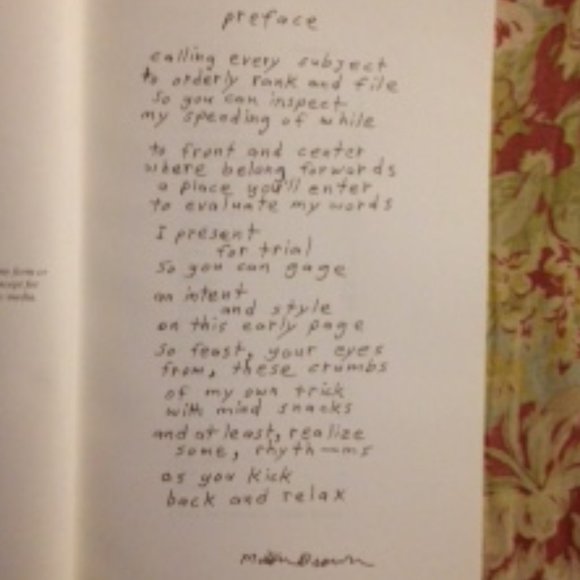 preface
calling every subject
to orderly rank and file
so you can inspect
my spending of while
to front and center
where belong forwords
a place you'll enter
to evaluate my words
I present
for trial
so you can gage
an intent
and style
on this early page
So feast, your eyes
from, these crumbs
of my own trick
with mind snacks
and at least, realize
some, rhyth-ms
as you kick
back and relax
Brown